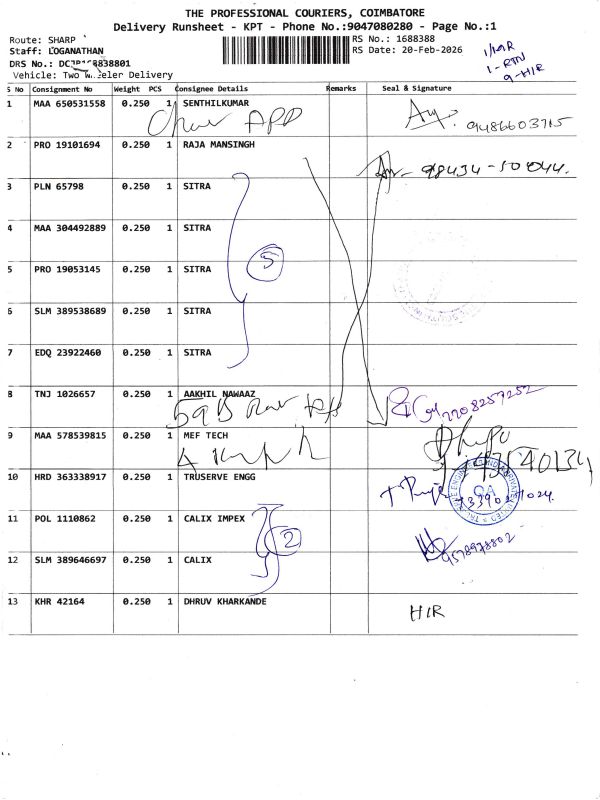 THE PROFESSIONAL COURIERS, COIMBATORE
Delivery Runsheet - KPT - Phone No.:9047080280 - Page No.:1
Route: SHARP
RS No.: 1688388
Staff: LOGANATHAN
RS Date: 20-Feb-2026
DRS No.:
Vehicle: Two Wheeler Delivery
1-RTN
9-HIR
S No Consignment No Weight PCS Consignee Details Remarks Seal & Signature
1 MAA 650531558 0.250 1 SENTHILKUMAR
9486603715
2 PRO 19101694 0.250 1 RAJA MANSINGH
98434-50044.
3 PLN 65798 0.250 1 SITRA
4 MAA 304492889 0.250 1 SITRA
5 PRO 19053145 0.250 1 SITRA
5
6 SLM 389538689 0.250 1 SITRA
7 EDQ 23922460 0.250 1 SITRA
8 TNJ 1026657 0.250 1 AAKHIL NAWAAZ
9 MAA 578539815 0.250 1 MEF TECH
10 HRD 363338917 0.250 1 TRUSERVE ENGG
11 POL 1110862 0.250 1 CALIX IMPEX
2
9578978802
12 SLM 389646697 0.250 1 CALIX
13 KHR 42164 0.250 1 DHRUV KHARKANDE
HIR